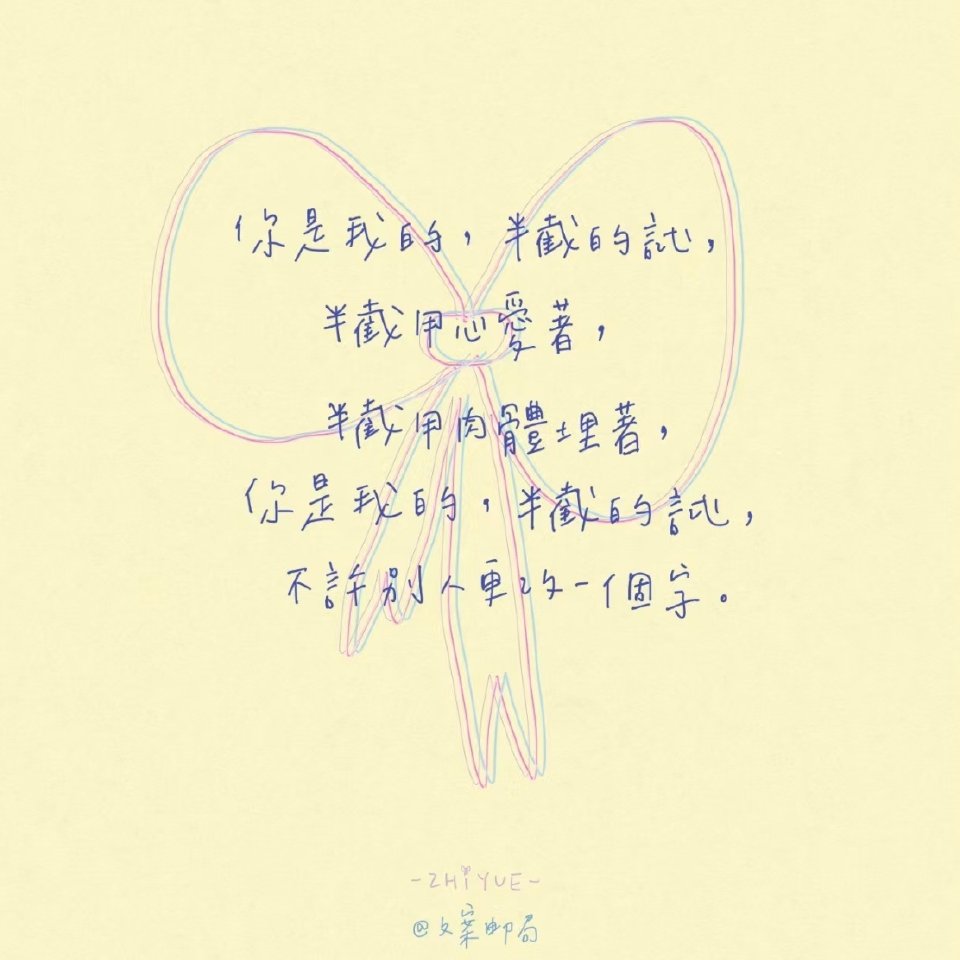 你是我的，半截的詩，
半截用心愛著，
半截用肉體埋著，
你是我的，半截的詩，
不許別人更改一個字。
-ZHiYUE-
@文案邮局